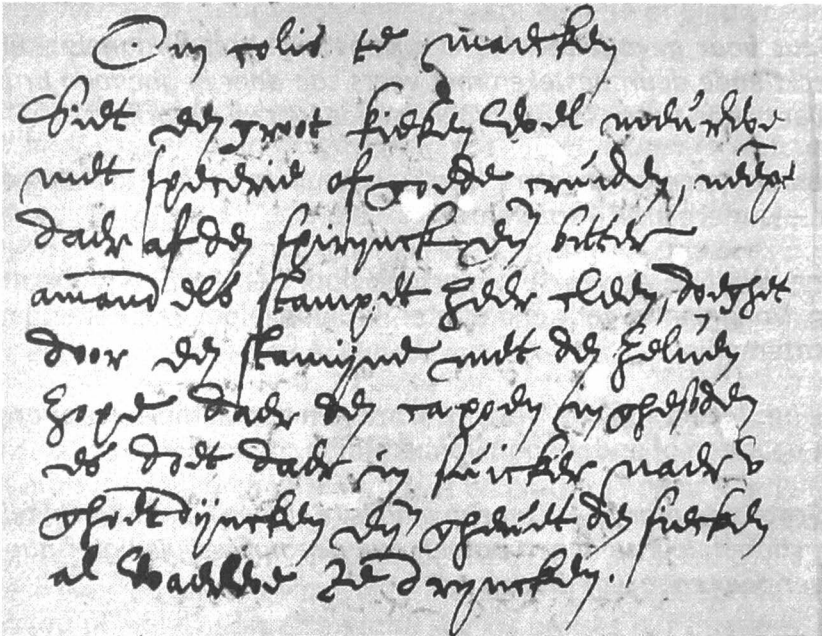 Om colis te maecken
Siet een groot kiecken wel neders we
met specerie of goede cruiden, neempt
daer af den spierynck eñ bitter
amandels stampet zeer cleen, doeghet
door een stamijne met den zeluen
zope daer den capoen in ghesoden
es doet daer in suicker naer v
ghoetdijncken eñ gheuet den siecken
al waerme te dryncken.